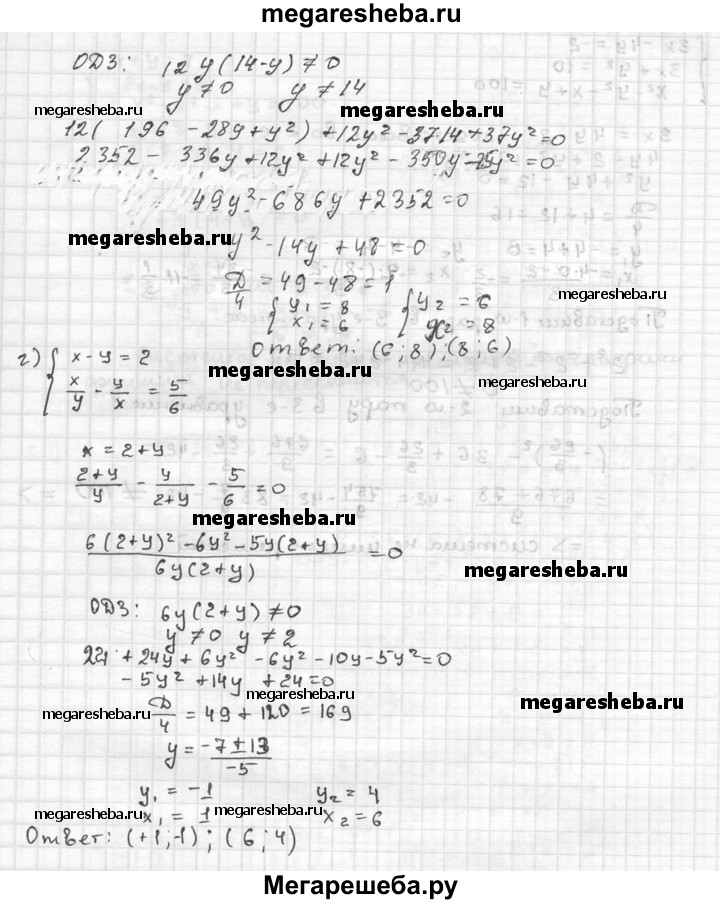 megaresheba.ru
ОДЗ: 12y(14-y) ≠ 0
y ≠ 0 y ≠ 14
megaresheba.ru megaresheba.ru
12( 196 - 28y + y²) + 12y² - 37·14 + 37y² = 0
2352 - 336y + 12y² + 12y² - 350y - 25y² = 0
49y² - 686y + 2352 = 0
megaresheba.ru
y² - 14y + 48 = 0
D/4 = 49 - 48 = 1
megaresheba.ru
{ y₁ = 8 { y₂ = 6
x₁ = 6 x₂ = 8
Ответ: (6; 8); (8; 6)
г) { x - y = 2
megaresheba.ru megaresheba.ru
x/y - y/x = 5/6
x = 2 + y
(2+y)/y - y/(2+y) - 5/6 = 0
megaresheba.ru
(6(2+y)² - 6y² - 5y(2+y))/(6y(2+y)) = 0
megaresheba.ru
ОДЗ: 6y(2+y) ≠ 0
y ≠ 0 y ≠ 2
24 + 24y + 6y² - 6y² - 10y - 5y² = 0
- 5y² + 14y + 24 = 0
megaresheba.ru
megaresheba.ru D/4 = 49 + 120 = 169
megaresheba.ru
y = (-7 ± 13)/(-5)
y₁ = -1 y₂ = 4
megaresheba.ru x₁ = 1 megaresheba.ru x₂ = 6
Ответ: (+1; -1); (6; 4)
megaresheba.ru
Мегарешеба.ру